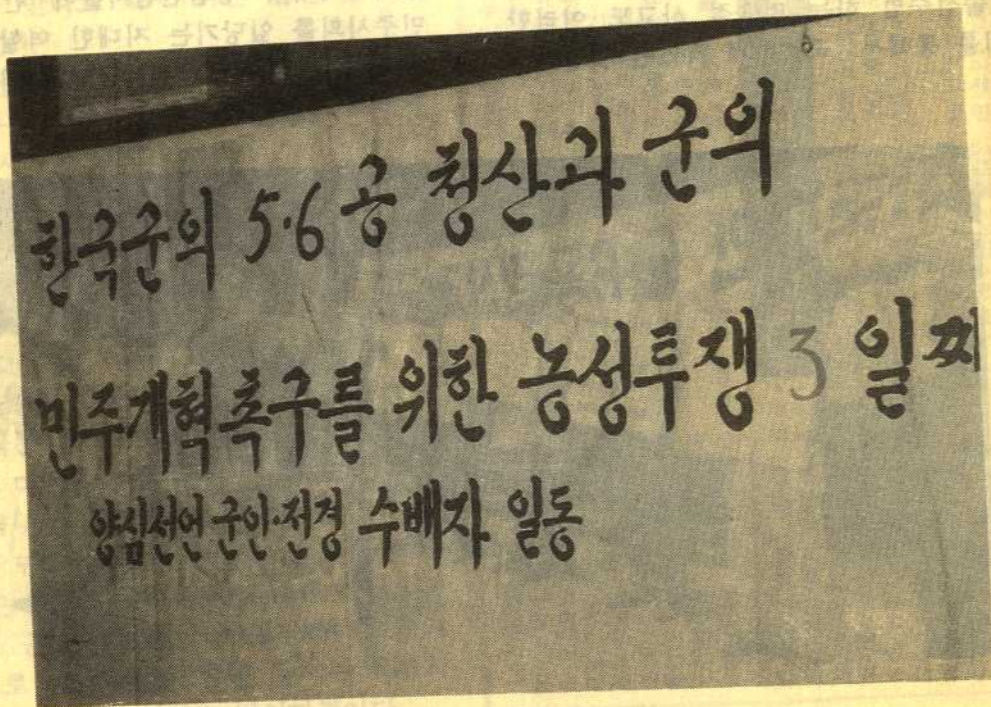 한국군의 5·6공 청산과 군의
민주개혁촉구를 위한 농성투쟁 3 일째
양심선언 군인·전경 수배자 일동